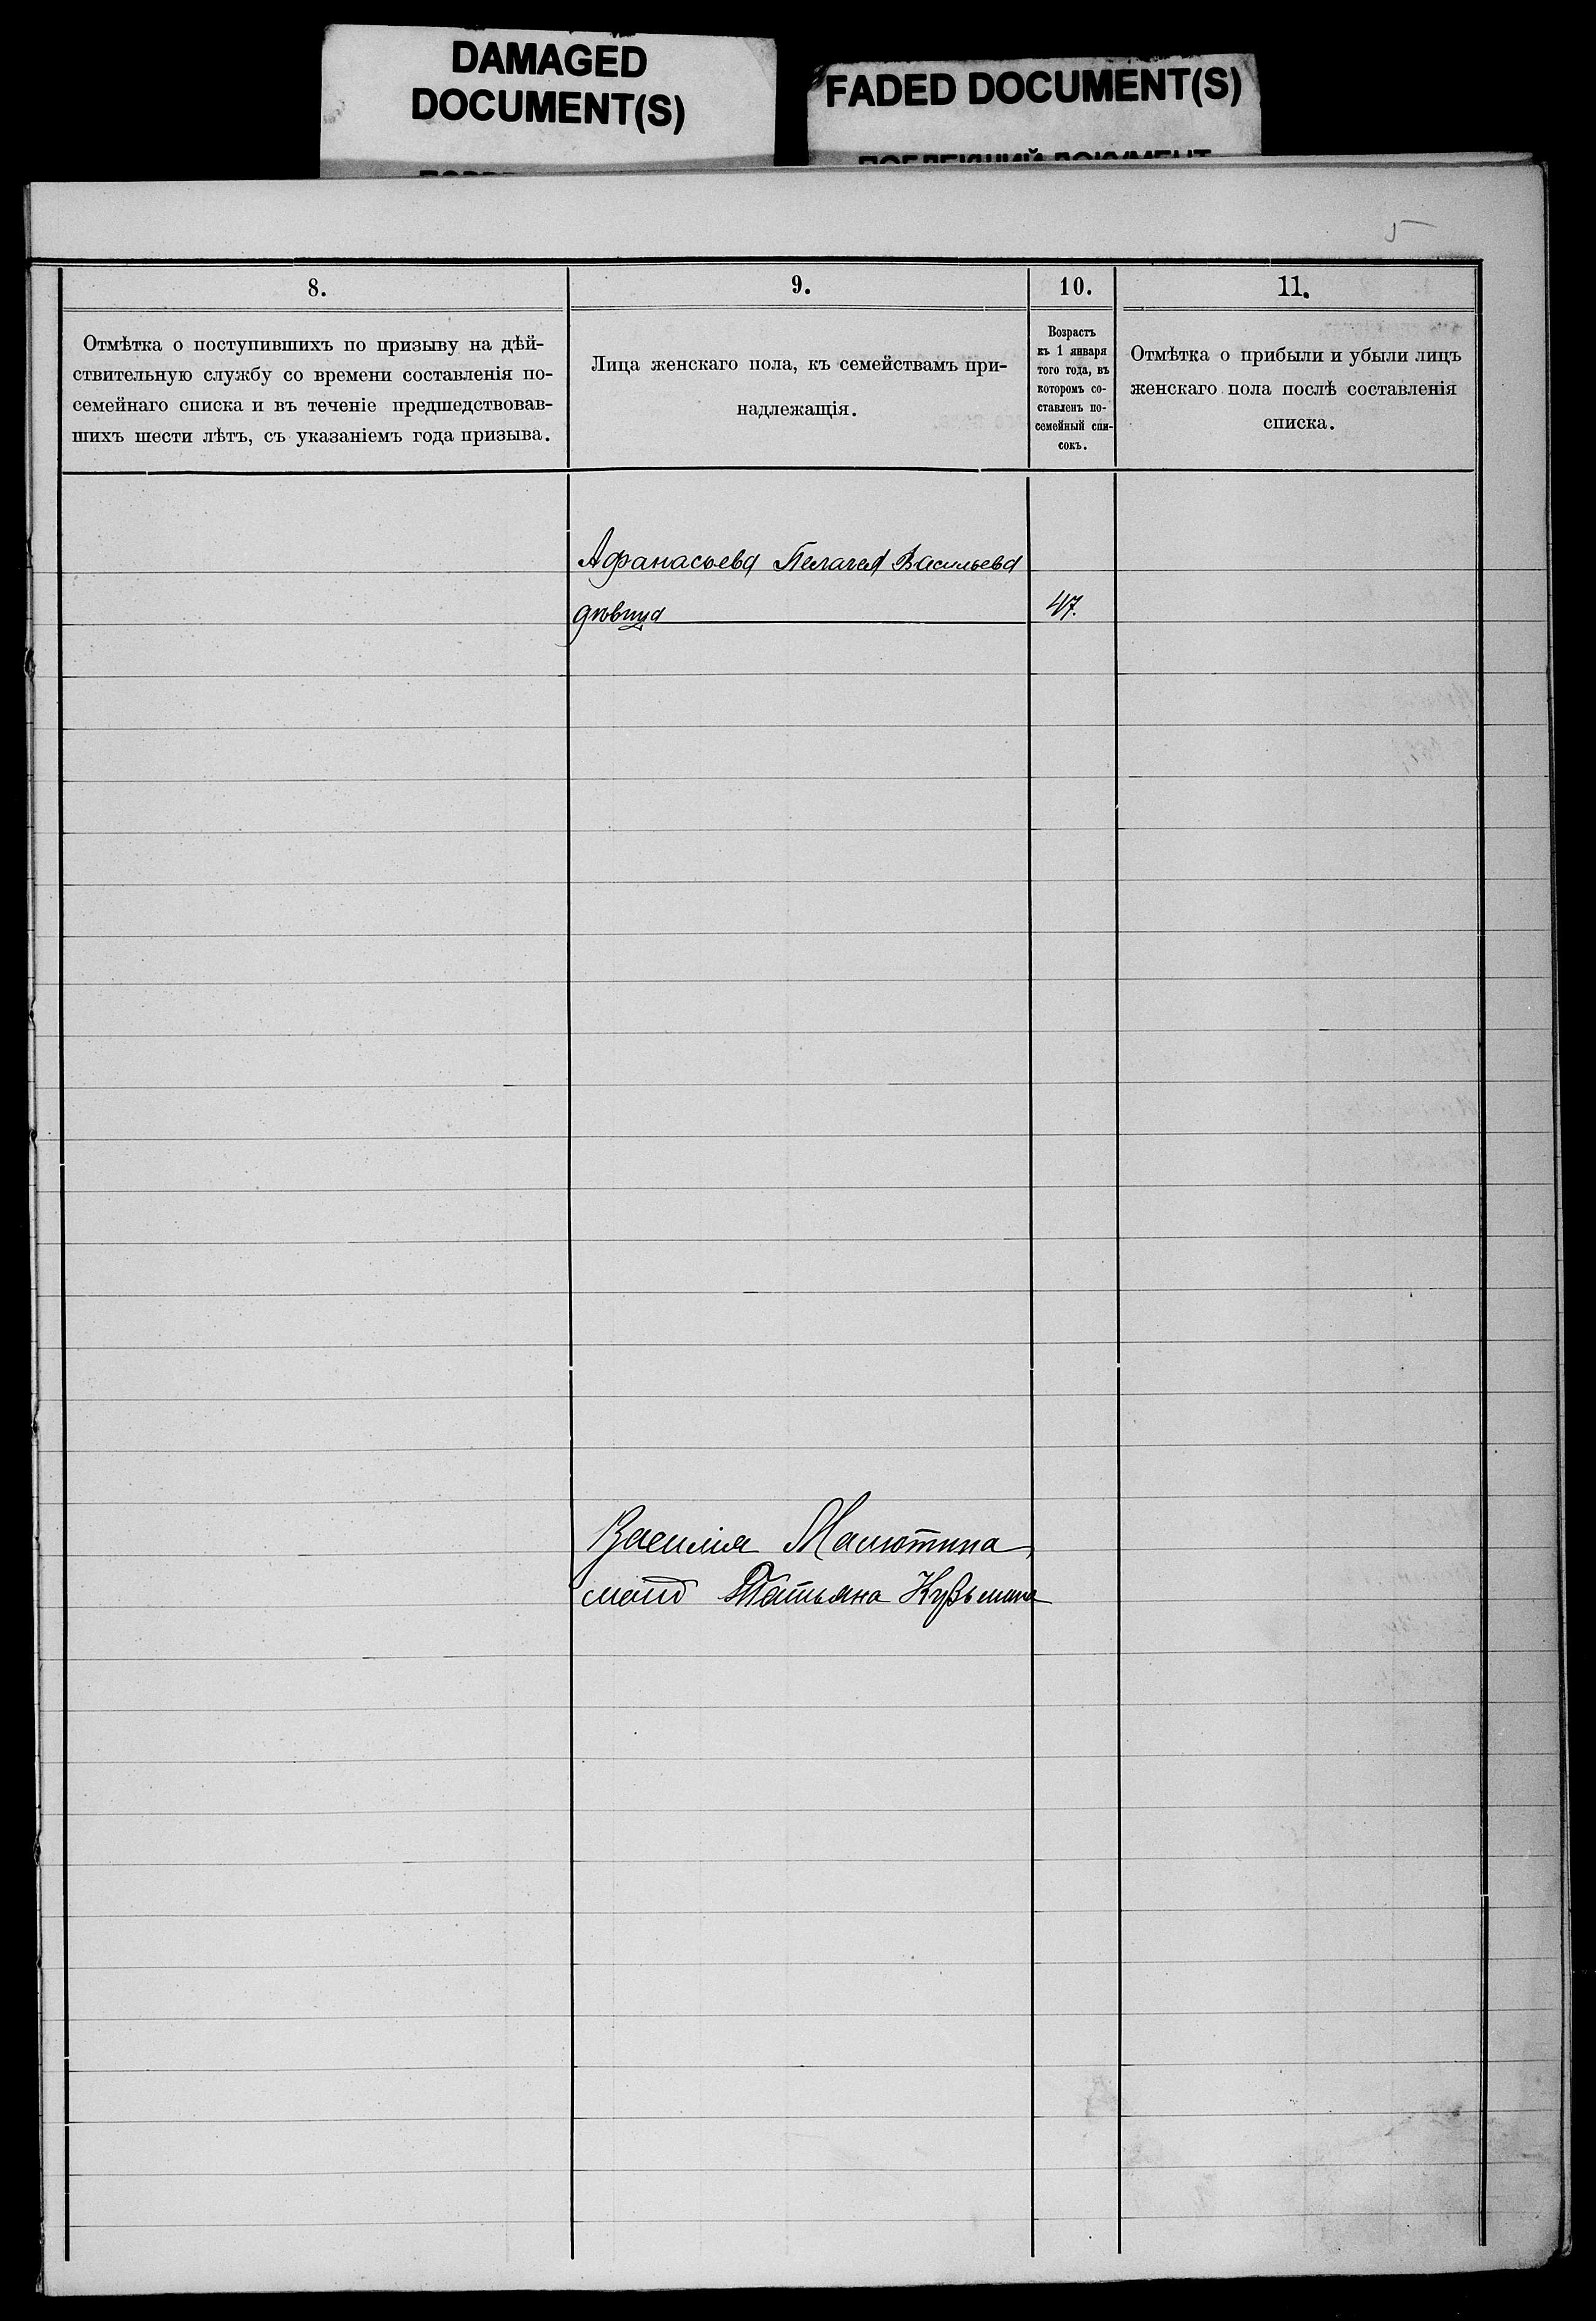 DAMAGED
DOCUMENT(S)
FADED DOCUMENT(S)
ПОБЛЕКШИЙ ДОКУМЕНТ
5
8.
9.
10.
11.
Отмѣтка о поступившихъ по призыву на дѣй-
ствительную службу со времени составленія по-
семейнаго списка и въ теченіе предшедствовав-
шихъ шести лѣтъ, съ указаніемъ года призыва.
Лица женскаго пола, къ семействамъ при-
надлежащія.
Возрастъ
къ 1 января
того года, въ
которомъ со-
ставленъ по-
семейный спи-
сокъ.
Отмѣтка о прибыли и убыли лицъ
женскаго пола послѣ составленія
списка.
Афанасьева Пелагея Васильева
дѣвица 47.
Василія Малютина
Татьяна Кузьмина